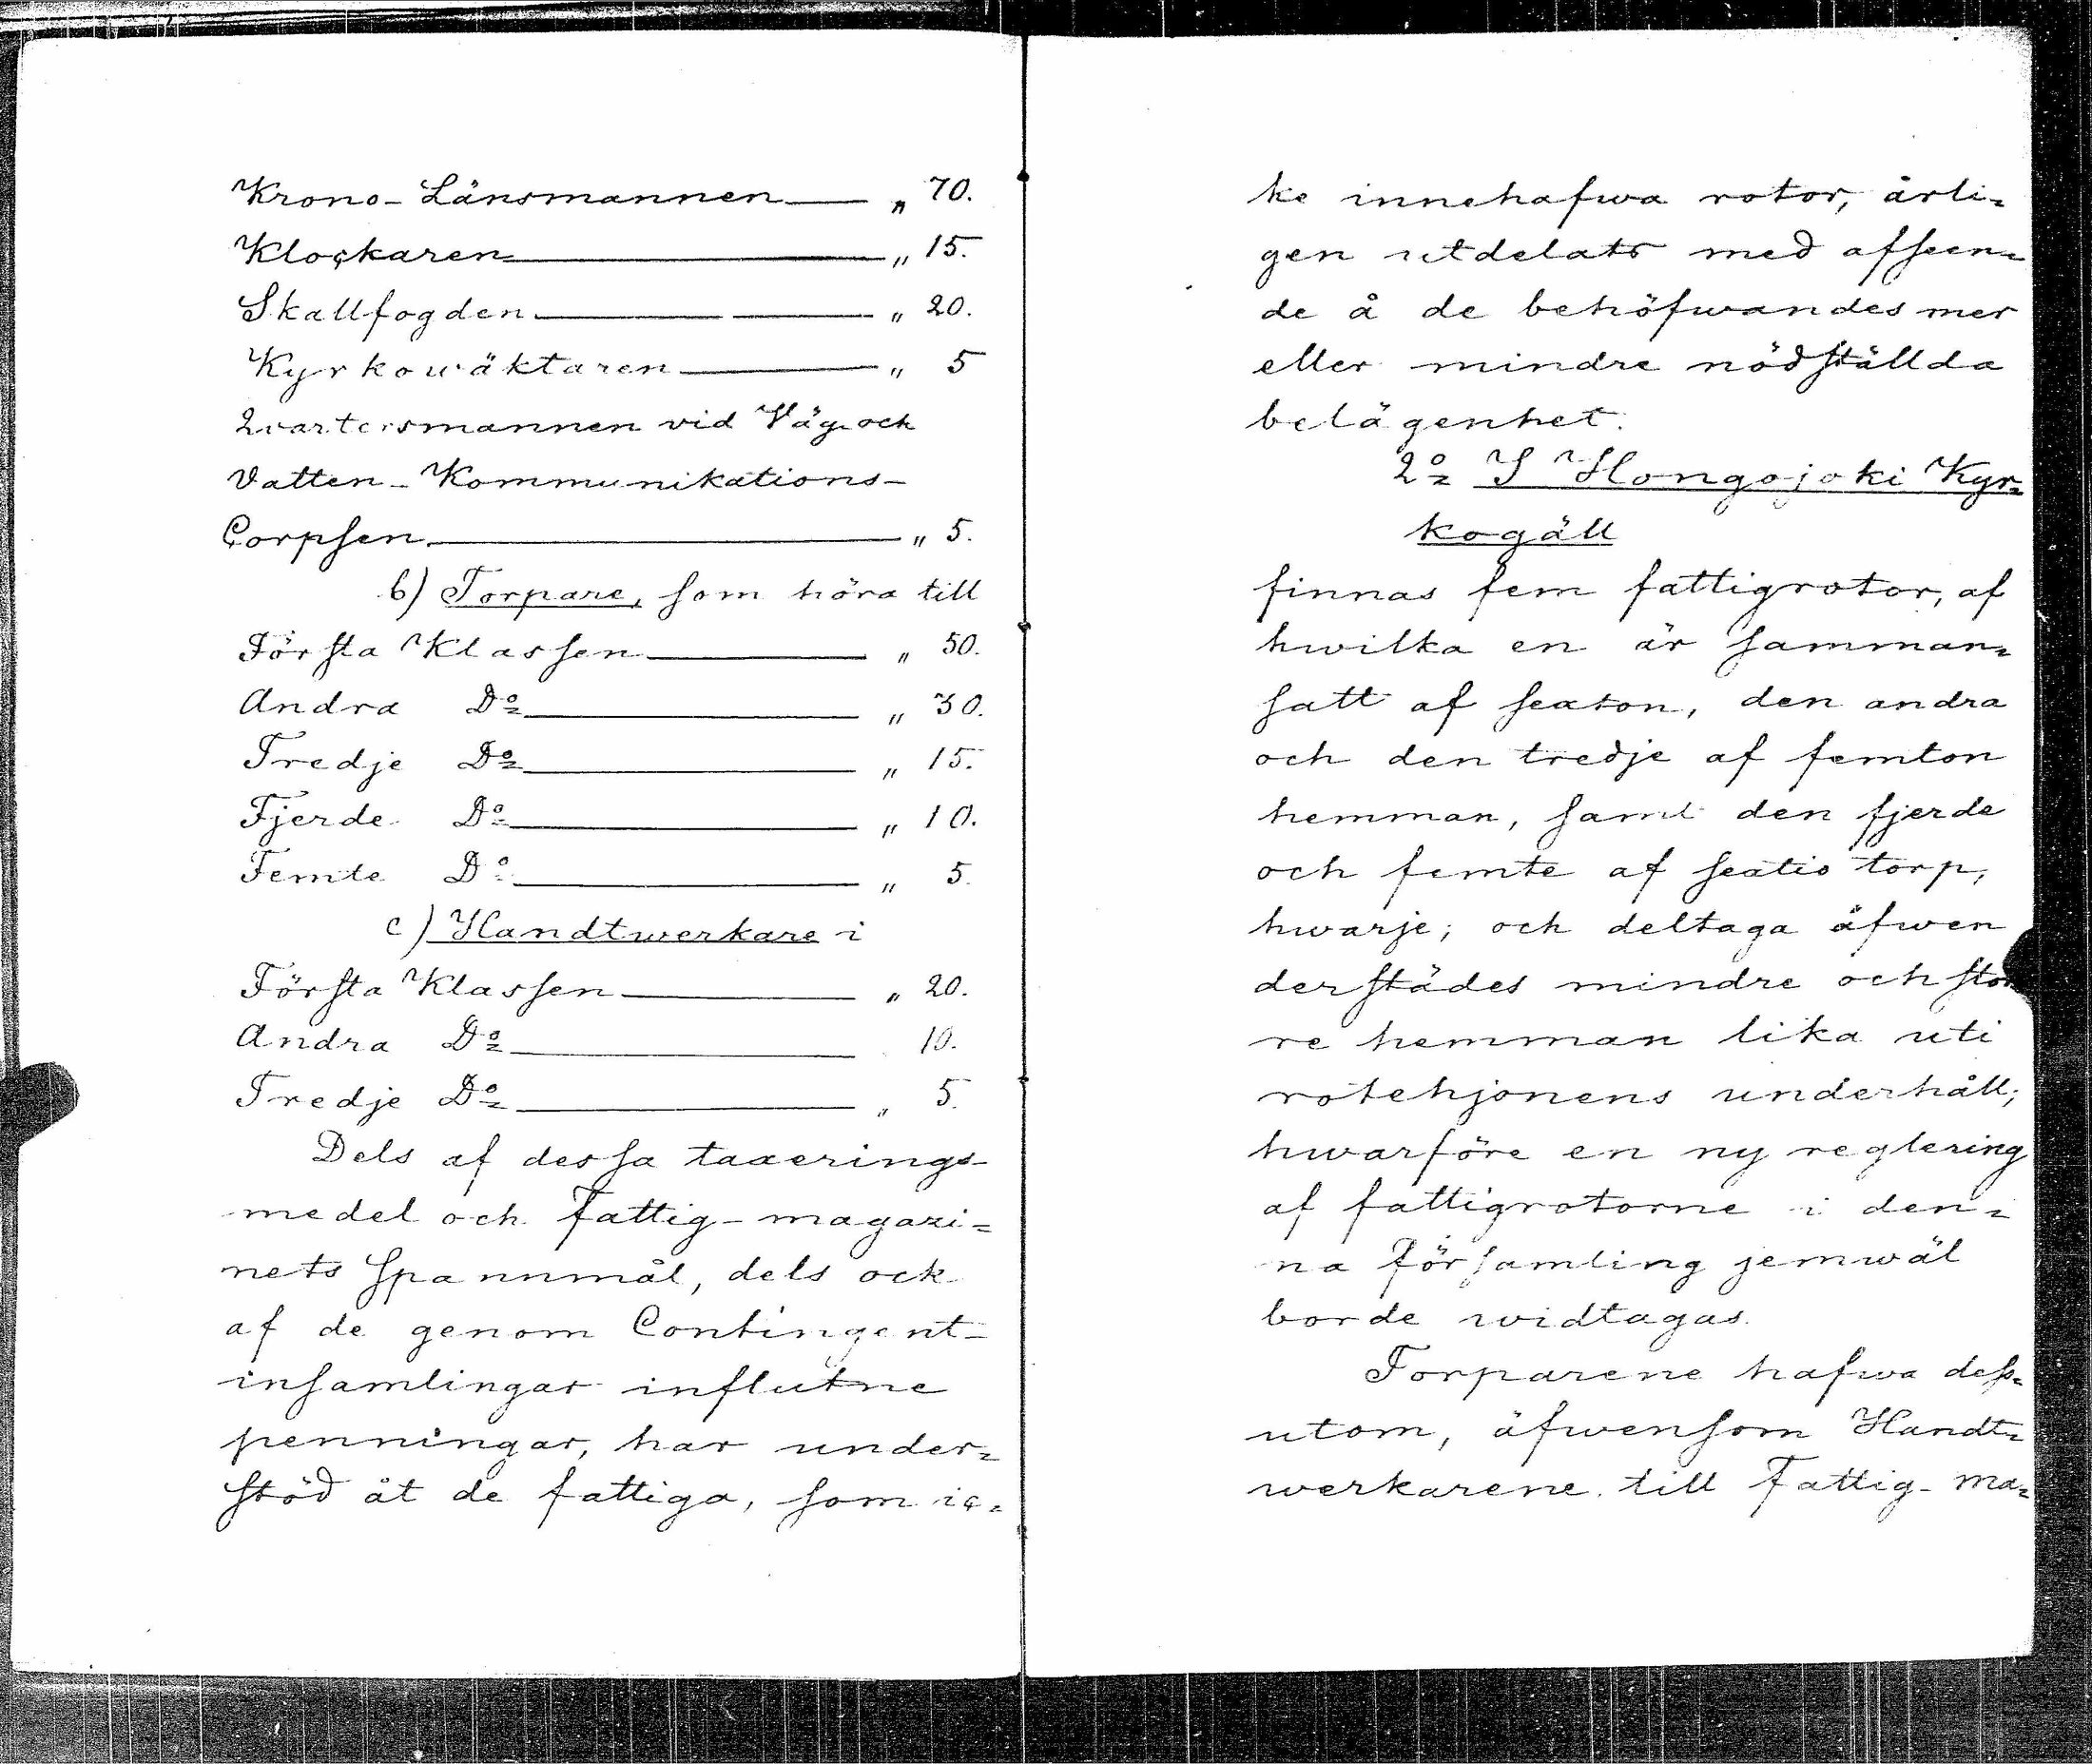 Krono-Länsmannen — „ 70.
Klockaren — „ 15.
Skallfogden — „ 20.
Kyrkowäktaren — „ 5
Qvartersmannen vid Väg och
Vatten-Kommunikations-
Corpsen. — „ 5.
b) Torpare, som höra till
Första Klassen — „ 50.
Andra Do — „ 30.
Tredje Do — „ 15.
Fjerde Do — „ 10.
Femte Do — „ 5.
c) Handtwerkare i
Första Klassen — „ 20.
Andra Do — 10.
Tredje Do — „ 5.
Dels af dessa taxerings-
medel och Fattig-magazi=
nets Spannmål, dels ock
af de genom Contingent-
insamlingar influtne
penningar, har under=
stöd åt de fattiga, som ic=
ke innehafwa rotor, årli=
gen utdelats med afseen=
de å de behöfwandes mer
eller mindre nödställda
belägenhet.
2o I Hongojoki Kyr=
kogäll
finnas fem fattigrotor, af
hwilka en är samman=
satt af sexton, den andra
och den tredje af femton
hemman, samt den fjerde
och femte af sextio torp,
hwarje; och deltaga äfwen
derstädes mindre och stör
re hemman lika uti
rotehjonens underhåll;
hwarföre en ny reglering
af fattigrotorne i den=
na Församling jemwäl
borde widtagas.
Torparene hafwa dess=
utom, äfwensom Handt=
werkarene till Fattig-ma=